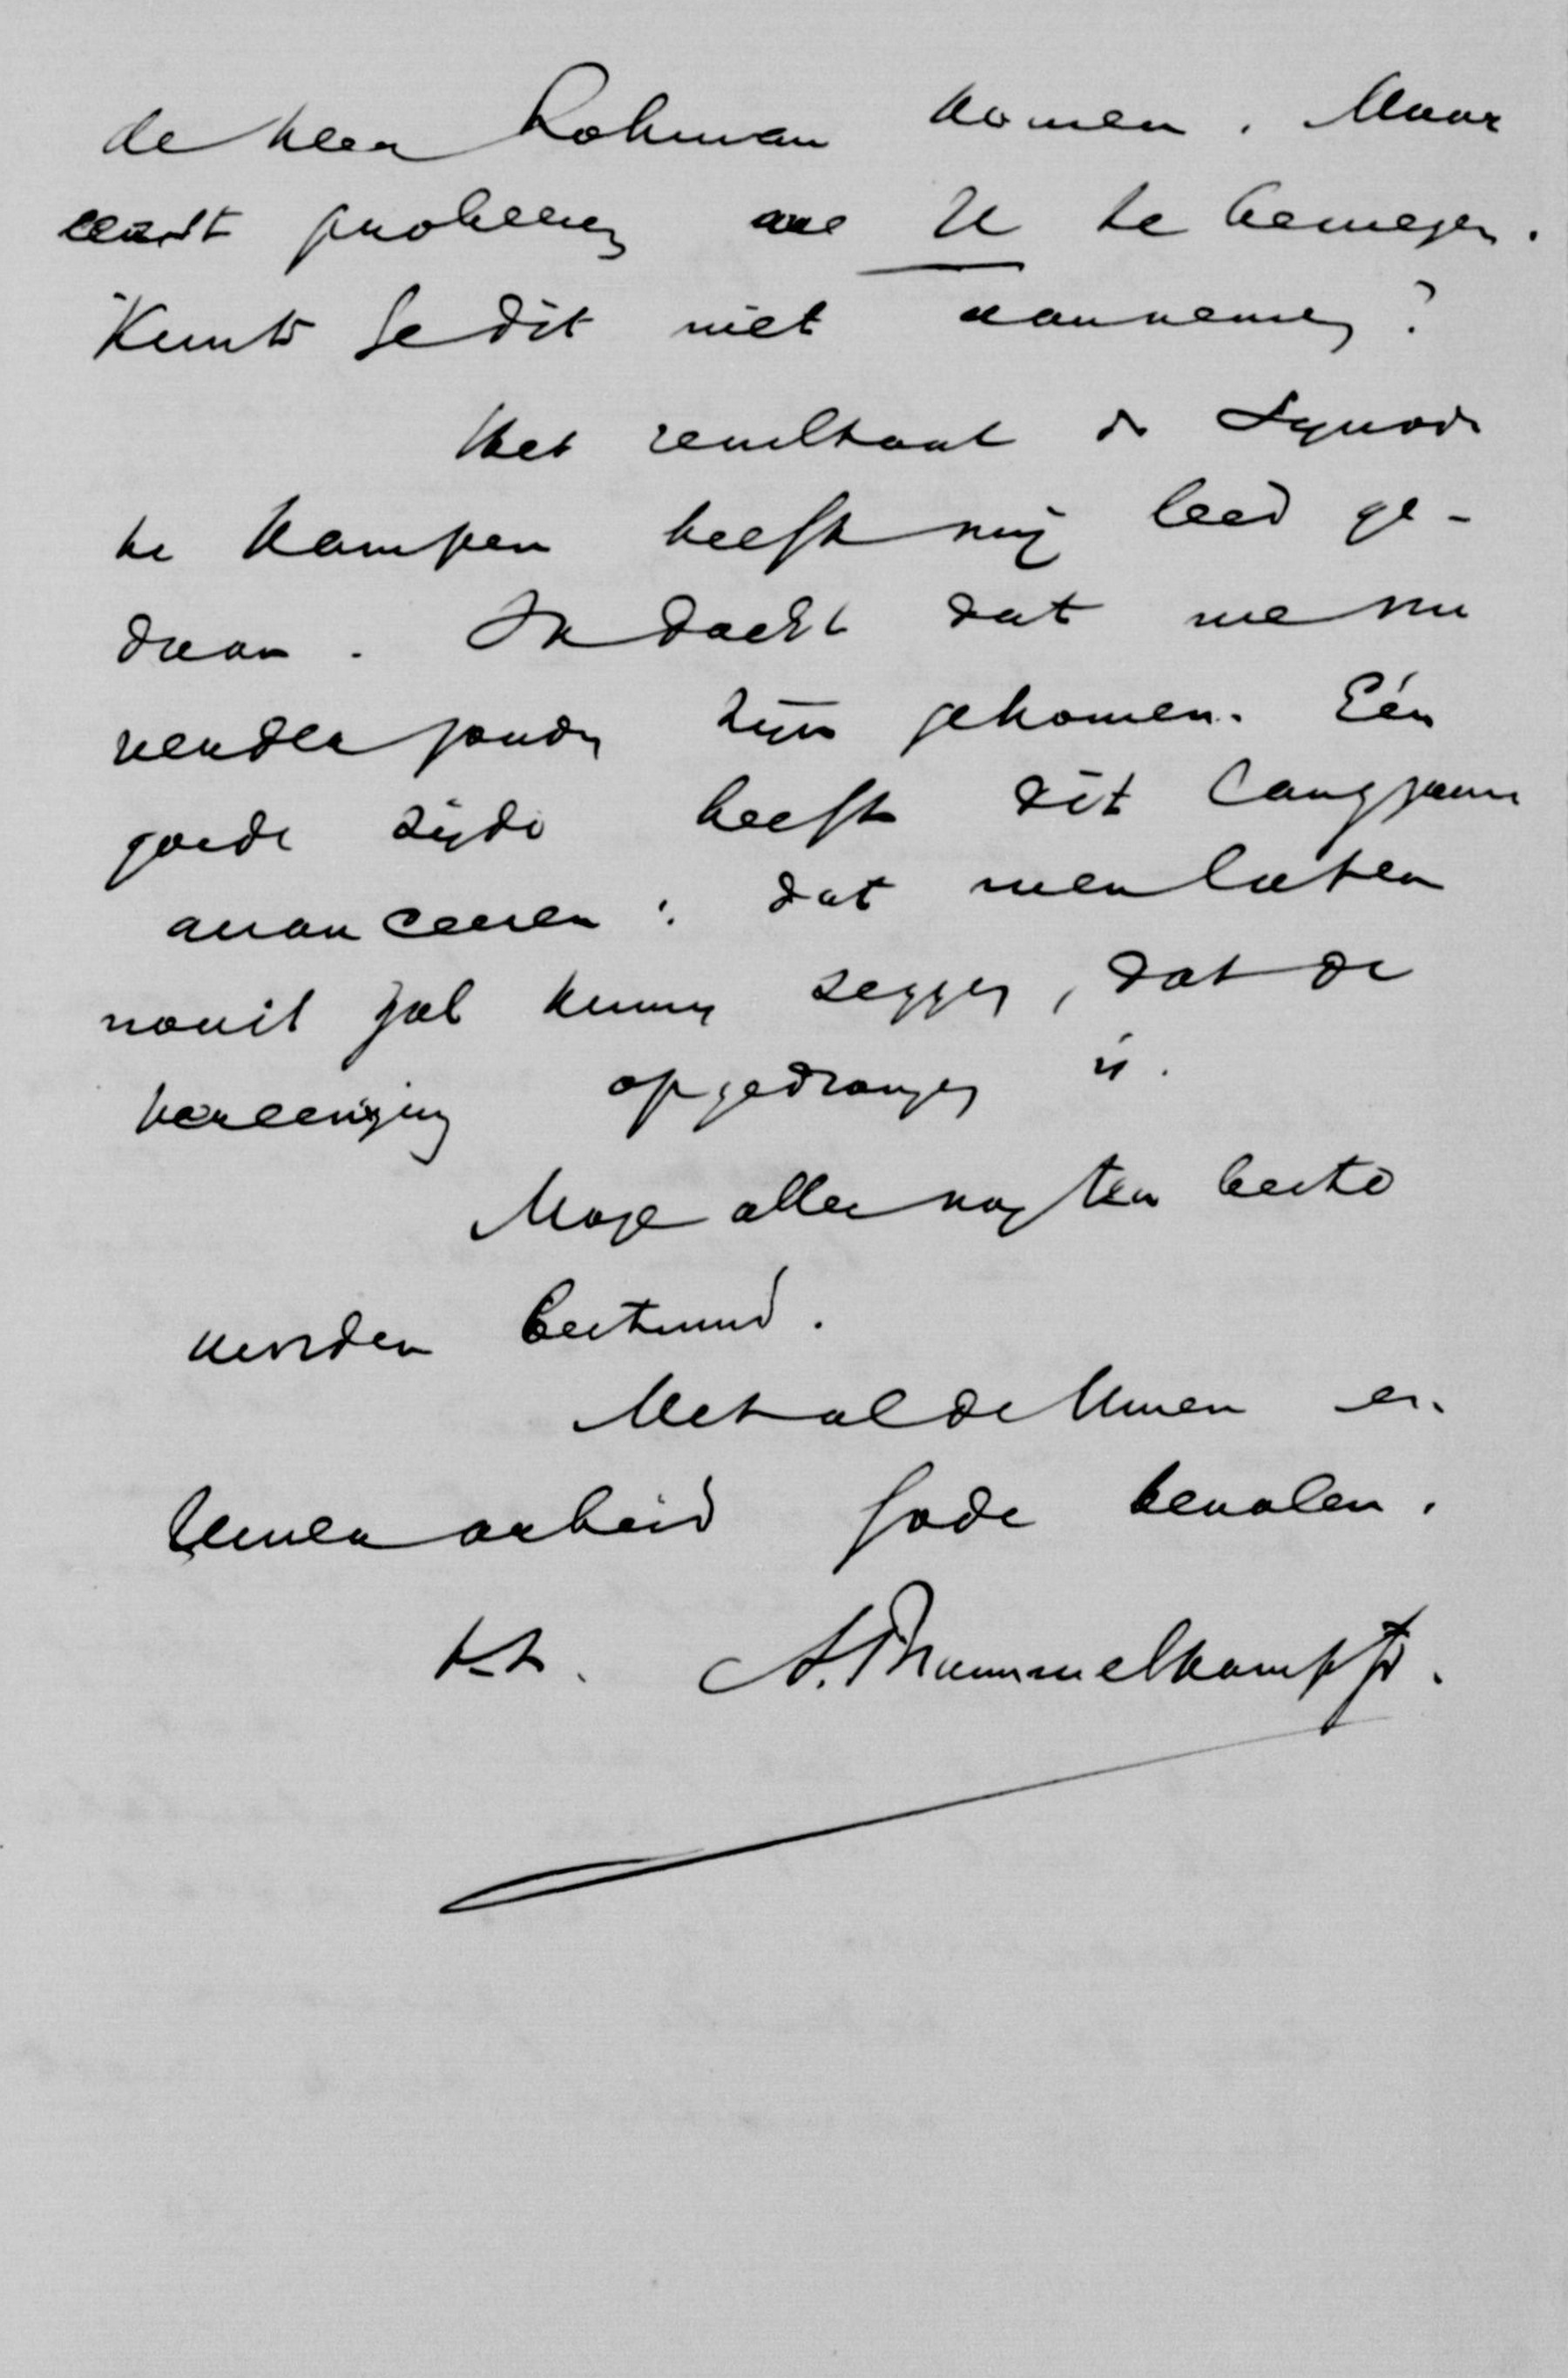 de heer Lohman komen. Maar
eerst probeeren we U te bewegen.
Kunt Ge dit niet aannemen?
Het resultaat der Synode
te Kampen heeft mij leed ge-
daan. Ik dacht dat we nu
verder zouden zijn gekomen. Eén
goede zijde heeft dit langzaam
avanceeren: dat men later
nooit zal kunnen zeggen, dat de
vereeniging opgedrongen is.
Moge alles nog ten beste
worden bestuurd.
Met al de Uwen en
Uwen arbeid Gode bevolen.
t.t. A. Brummelkamp Jr.